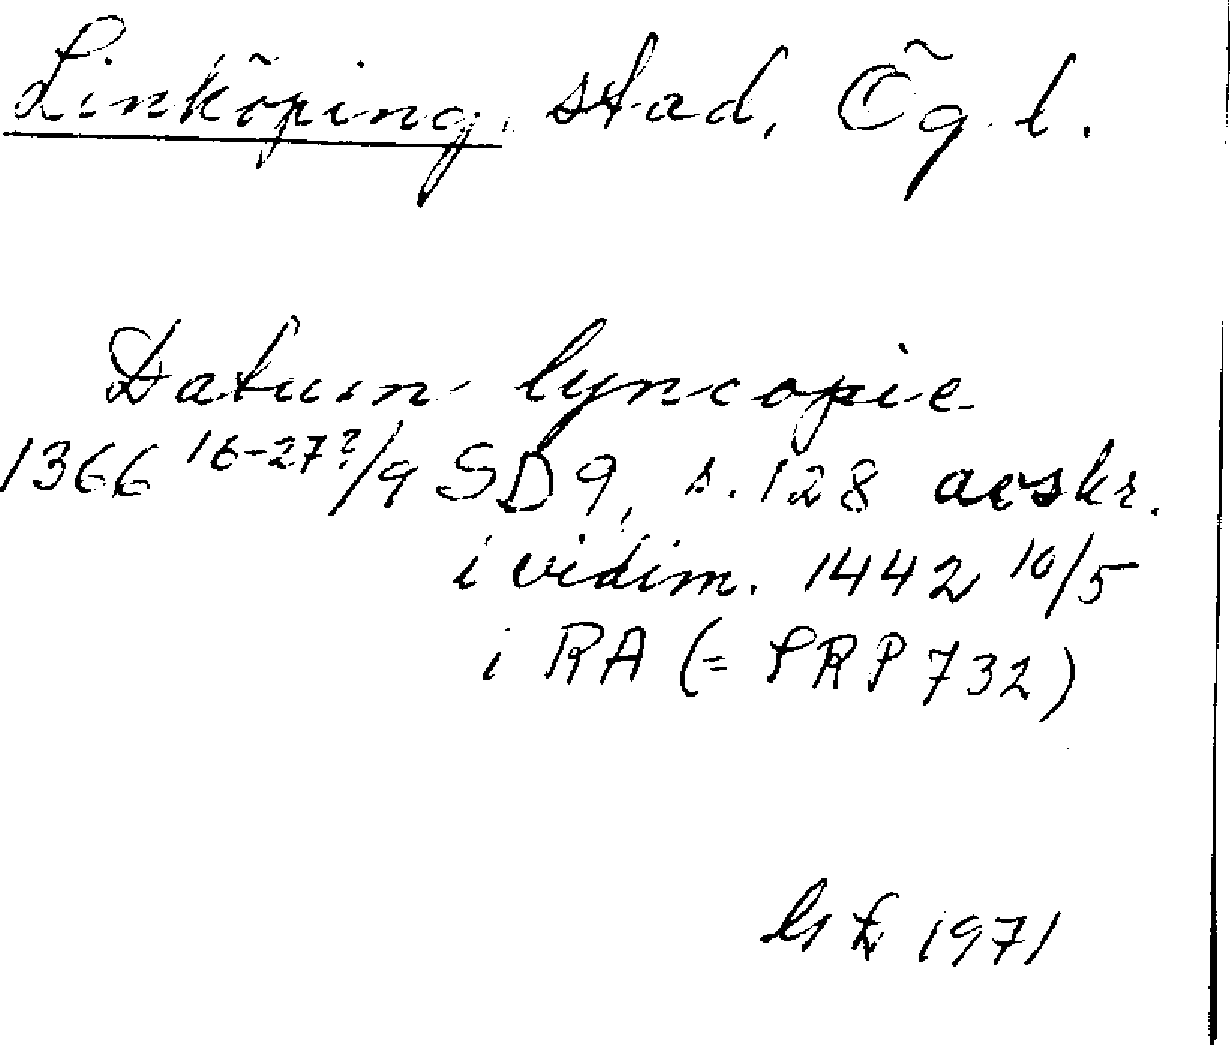 Linköping, stad, Ög. l.
Datum lyncopie
1366 16-27?/9 SD 9, s. 128 avskr.
i vidim. 1442 10/5
i RA (= PRP 732)
1971